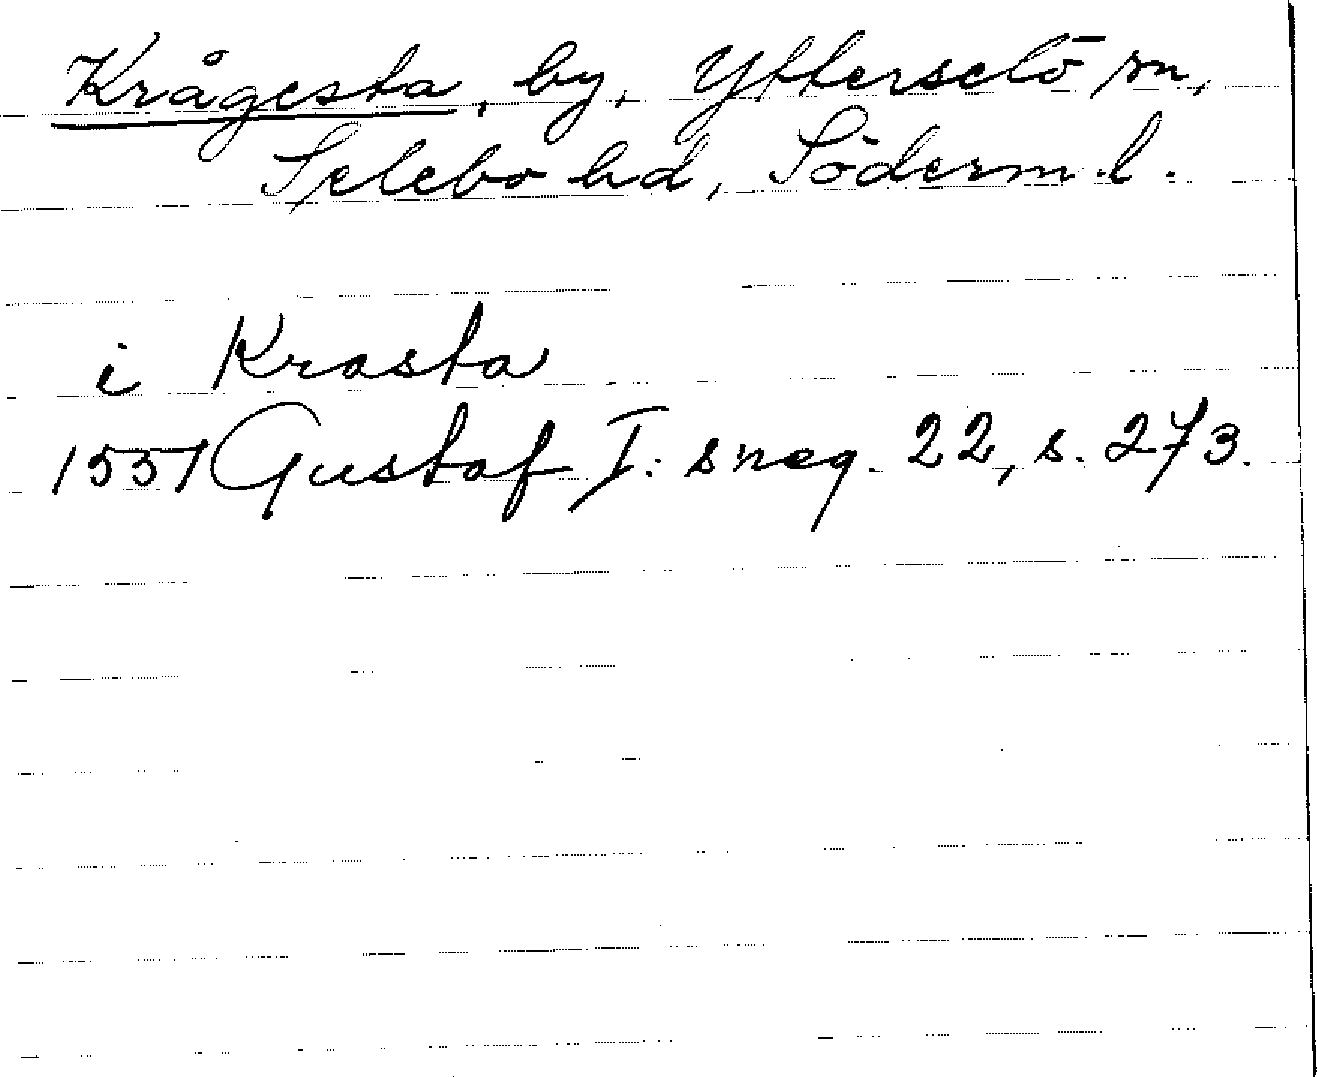 Krågesta, by, Ytterselö sn,
Selebo hd, Söderm.l.
i Krasta
1551 Gustaf I: s reg. 22, s. 273.